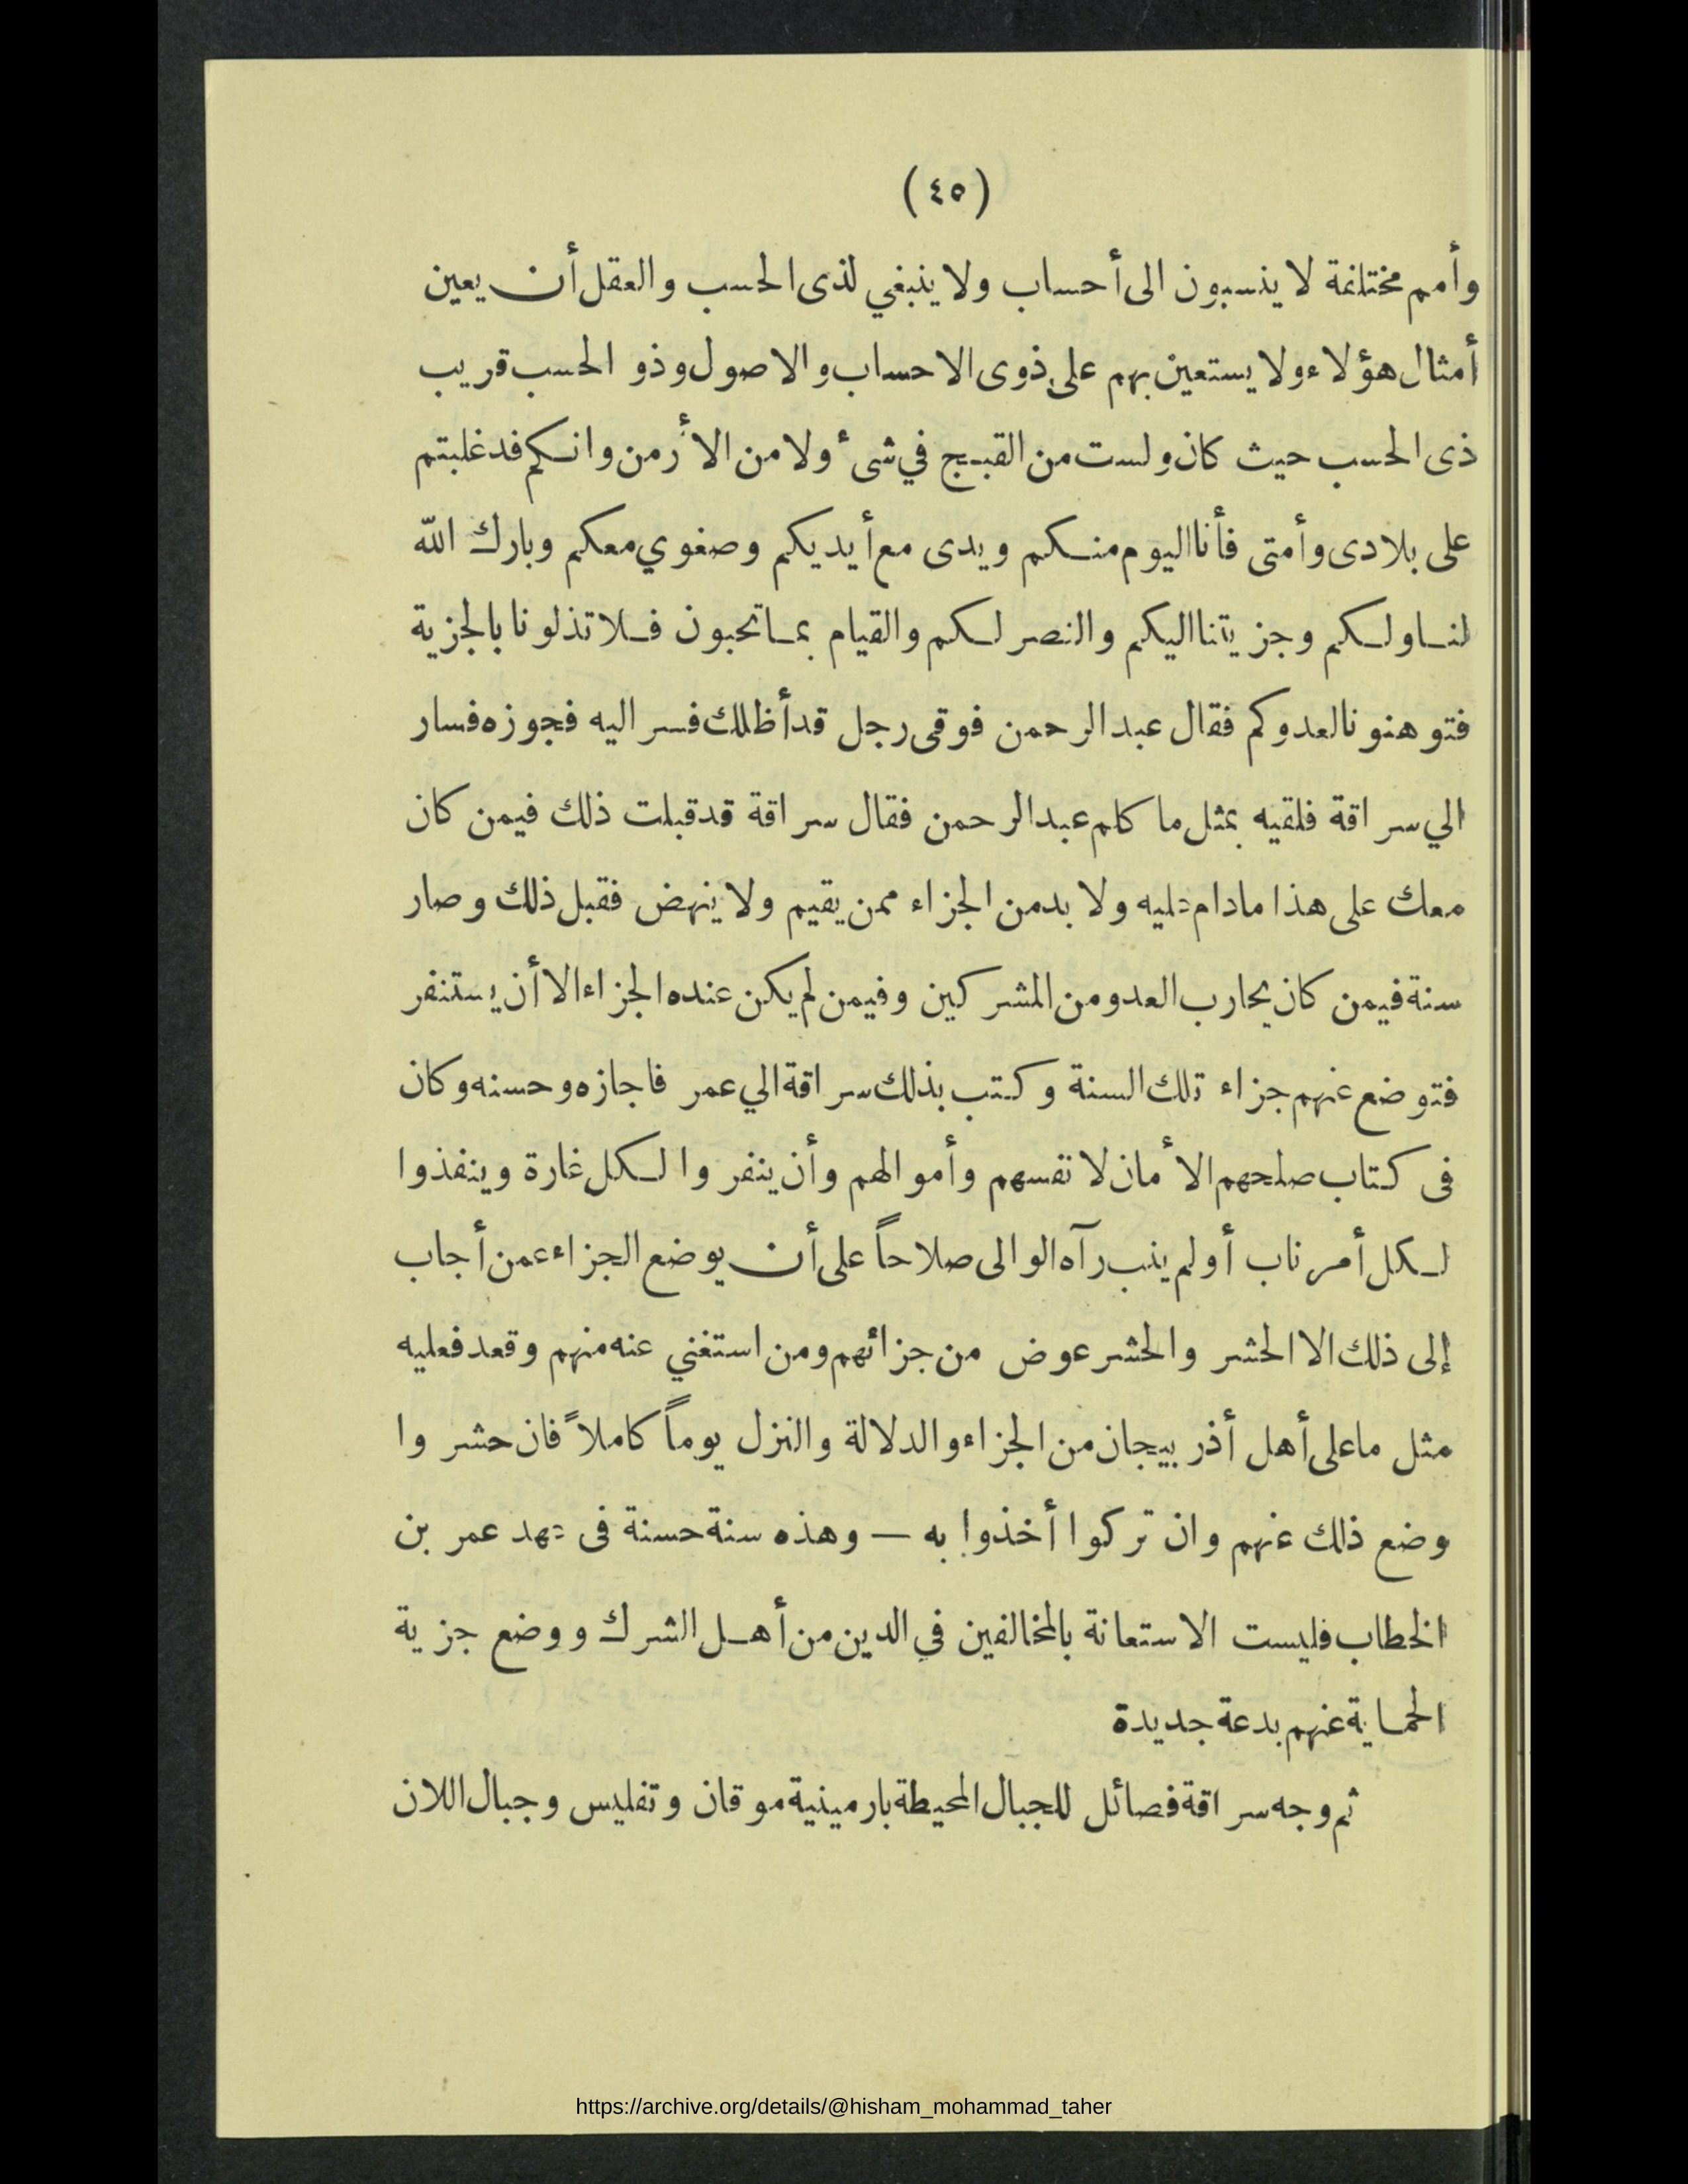 (٤٥)
وأمم مختلفة لا ينسبون الى أحساب ولا ينبغي لذى الحسب والعقل أن يعين
أمثال هؤلاء ولا يستعين بهم على ذوى الاحساب والاصول وذو الحسب قريب
ذى الحسب حيث كان ولست من القبج في شىء ولا من الأرمن وانكم قد غلبتم
على بلادى وأمتى فأنا اليوم منكم ويدى مع أيديكم وصغوي معكم وبارك الله
لنا ولكم وجزيتنا اليكم والنصر لكم والقيام بما تحبون فلا تذلونا بالجزية
فتوهنونا لعدوكم فقال عبد الرحمن فوقى رجل قد أظلك فسر اليه فجوزه فسار
الي سراقة فلقيه بمثل ما كلم عبد الرحمن فقال سراقة قد قبلت ذلك فيمن كان
معك على هذا مادام عليه ولا بد من الجزاء ممن يقيم ولا ينهض فقبل ذلك وصار
سنة فيمن كان يحارب العدو من المشركين وفيمن لم يكن عنده الجزاء الا أن يستنفر
فتوضع عنهم جزاء تلك السنة وكتب بذلك سراقة الي عمر فاجازه وحسنه وكان
فى كتاب صلحهم الأمان لانفسهم وأموالهم وأن ينفروا لكل غارة وينفذوا
لكل أمر ناب أو لم ينب رآه الوالى صلاحاً على أن يوضع الجزاء عمن أجاب
إلى ذلك الا الحشر والحشر عوض من جزائهم ومن استغني عنه منهم وقعد فعليه
مثل ما على أهل أذربيجان من الجزاء والدلالة والنزل يوماً كاملاً فان حشروا
وضع ذلك عنهم وان تركوا أخذوا به — وهذه سنة حسنة فى عهد عمر بن
الخطاب فليست الاستعانة بالمخالفين في الدين من أهل الشرك ووضع جزية
الحماية عنهم بدعة جديدة
ثم وجه سراقة فصائل للجبال المحيطة بارمينية موقان وتفليس وجبال اللان
https://archive.org/details/@hisham_mohammad_taher